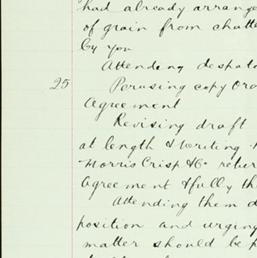 had already arrange
of grain from chatte
by you
Attending despatc
25 Perusing copy Ord
Agreement
Revising draft
at length & writing
Morris Crisp & Co retur
Agreement & fully th
Attending them d
position and urging
matter should be p